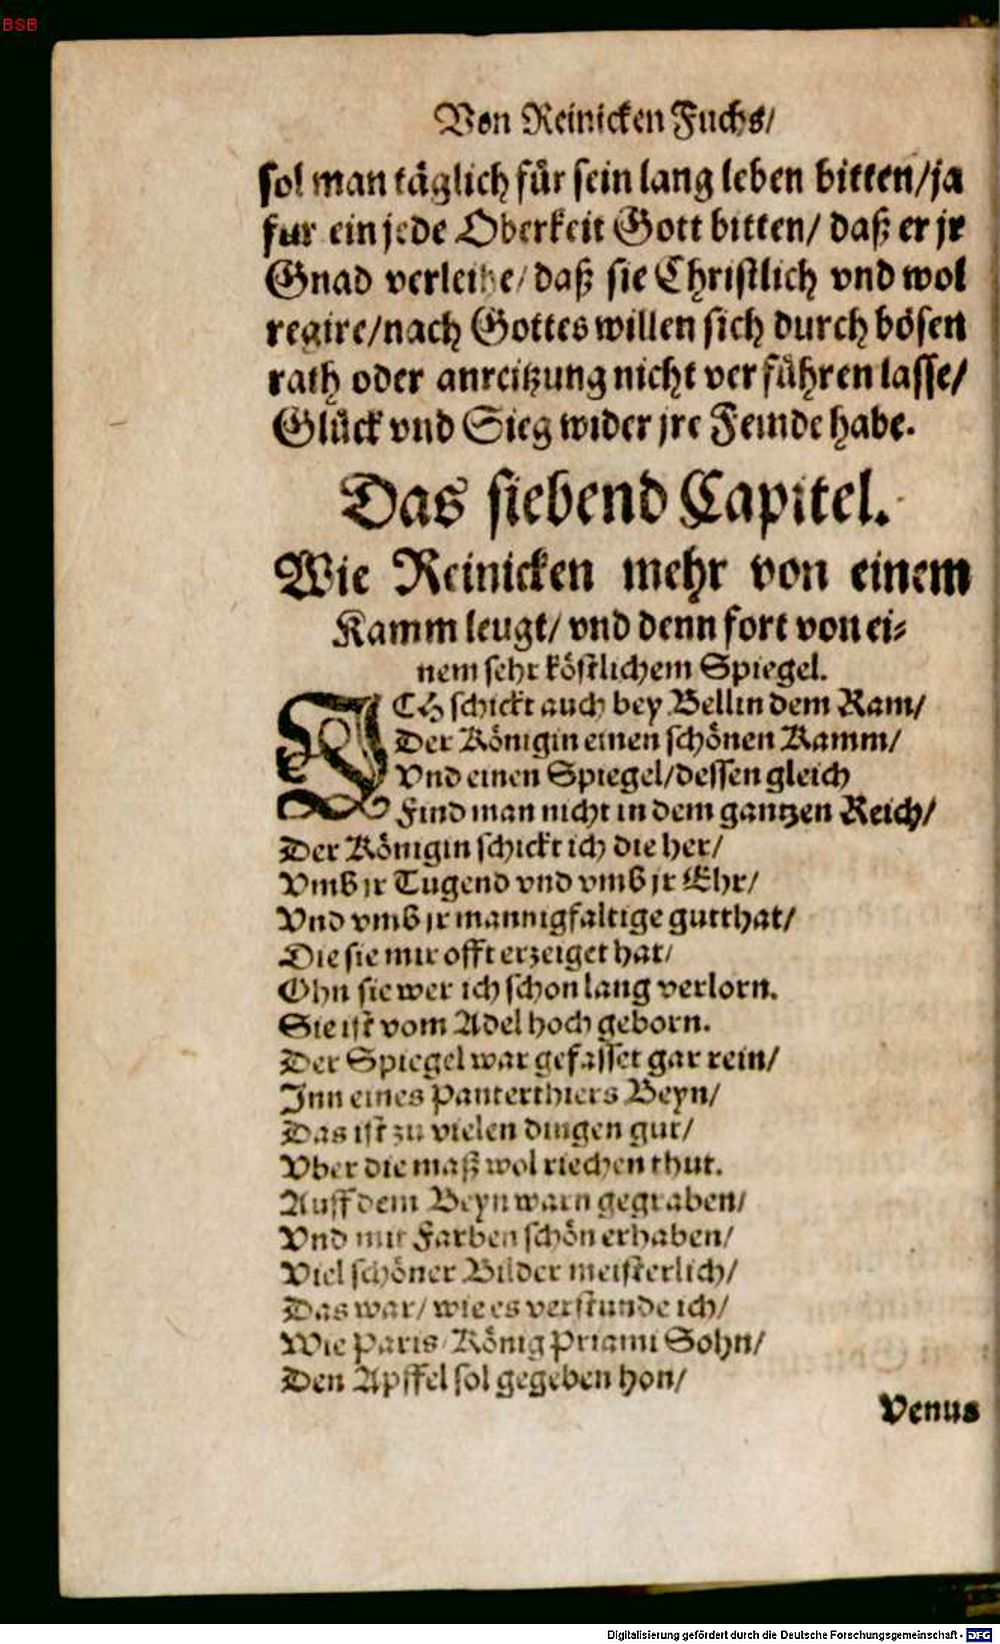 BSB
Von Reinicken Fuchs/
sol man täglich für sein lang leben bitten/ja
fur ein jede Oberkeit Gott bitten/ daß er jr
Gnad verleihe/daß sie Christlich vnd wol
regire/nach Gottes willen sich durch bösen
rath oder anreitzung nicht verführen lasse/
Glück vnd Sieg wider jre Feinde habe.
Das siebend Capitel.
Wie Reinicken mehr von einem
Kamm leugt/ vnd denn fort von ei⸗
nem sehr köstlichem Spiegel.
ICh schickt auch bey Bellin dem Ram/
Der Königin einen schönen Kamm/
Vnd einen Spiegel/dessen gleich
Find man nicht in dem gantzen Reich/
Der Königin schickt ich die her/
Vmb jr Tugend vnd vmb jr Ehr/
Vnd vmb jr mannigfaltige gutthat/
Die sie mir offt erzeiget hat/
Ohn sie wer ich schon lang verlorn.
Sie ist vom Adel hoch geborn.
Der Spiegel war gefasset gar rein/
Inn eines Panterthiers Beyn/
Das ist zu vielen dingen gut/
Vber die maß wol riechen thut.
Auff dem Beyn warn gegraben/
Vnd mit Farben schön erhaben/
Viel schöner Bilder meisterlich/
Das war/ wie es verstunde ich/
Wie Paris/König Priami Sohn/
Den Apffel sol gegeben hon/
Venus
Digitalisierung gefördert durch die Deutsche Forschungsgemeinschaft - DFG